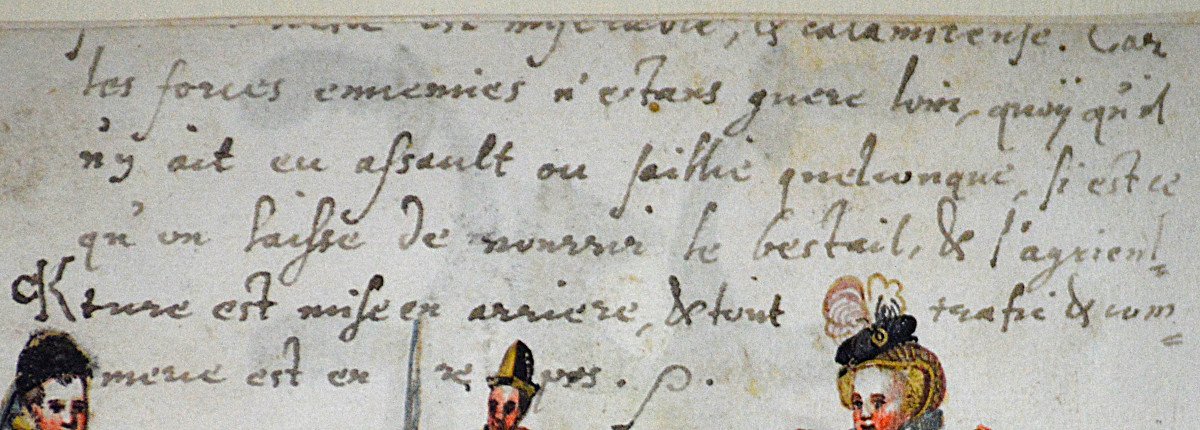 est myserable, & calamiteuse. Car
les forces ennemies n'estans guere loin, quoÿ qu'il
n'y ait eu assault ou saillie quelconque, si est ce
qu'on laisse de nourrir le bestail, & l'agricul=
K ture est mise en arriere, & tout trafic & com=
merce est en re pos.